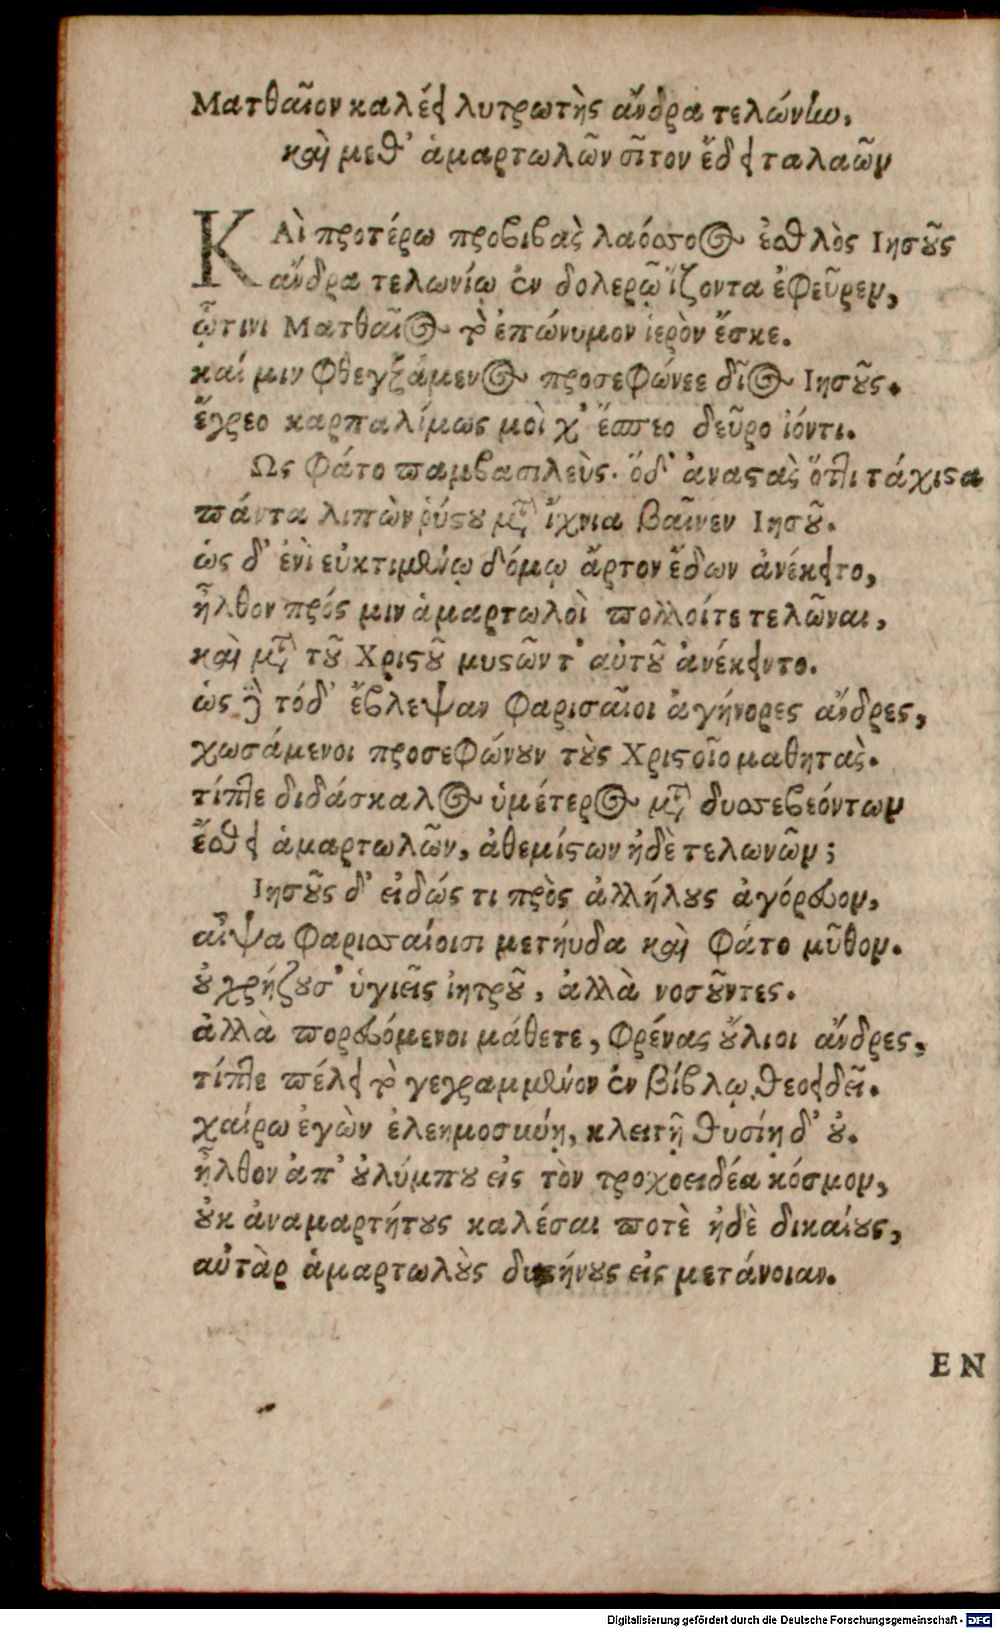 Ματθαῖον καλέει λυτρωτὴς ἄνδρα τελώνην,
καὶ μεθ' ἁμαρτωλῶν σῖτον ἔδει ταλαῶν
ΚΑὶ προτέρω προβιβὰς λαόσσοος ἐσθλὸς Ιησοῦς
ἄνδρα τελωνίῳ ἐν δολερῷ ἵζοντα ἐφεῦρεν,
ᾧτινι Ματθαῖος τὸ ἐπώνυμον ἱερὸν ἔσκε.
καί μιν φθεγξάμενος προσεφώνεε δῖος Ιησοῦς.
ἔγρεο καρπαλίμως μοὶ χ' ἕσπεο δεῦρο ἰόντι.
Ως φάτο παμβασιλεὺς. ὅδ' ἀναστὰς ὅττι τάχιστα
πάντα λιπὼν ῥύστου μετ' ἴχνια βαῖνεν Ιησοῦ.
ὡς δ' ἐνὶ εὐκτιμένῳ δόμῳ ἄρτον ἔδων ἀνέκειτο,
ἦλθον πρός μιν ἁμαρτωλοὶ πολλοίτε τελῶναι,
καὶ μετὰ τοῦ Χριστοῦ μυστῶν τ' αὐτοῦ ἀνέκειντο.
ὡς δὲ τόδ' ἔβλεψαν Φαρισαῖοι ἀγήνορες ἄνδρες,
χωσάμενοι προσεφώνουν τοὺς Χριστοῖο μαθητὰς.
τίπτε διδάσκαλος ὑμέτερος μετὰ δυσσεβεόντων
ἔσθει ἁμαρτωλῶν, ἀθεμίστων ἠδὲ τελωνῶν;
Ιησοῦς δ' εἰδώς τι πρὸς ἀλλήλους ἀγόρευον,
αἶψα Φαρισσαίοισι μετήυδα καὶ φάτο μῦθον.
οὐ χρήζουσ' ὑγιεῖς ἰητροῦ, ἀλλὰ νοσοῦντες.
ἀλλὰ πορευόμενοι μάθετε, φρένας οὔλιοι ἄνδρες,
τίπτε πέλει τὸ γεγραμμένον ἐν βίβλῳ θεοειδεῖ.
χαίρω ἐγὼν ἐλεημοσύνῃ, κλειτῇ θυσίῃ δ' οὐ.
ἦλθον ἀπ' οὐλύμπου εἰς τὸν τροχοειδέα κόσμον,
οὐκ ἀναμαρτήτους καλέσαι ποτὲ ἠδὲ δικαίους,
αὐτὰρ ἁμαρτωλοὺς δυστήνους εἰς μετάνοιαν.
ΕΝ
Digitalisierung gefördert durch die Deutsche Forschungsgemeinschaft - DFG